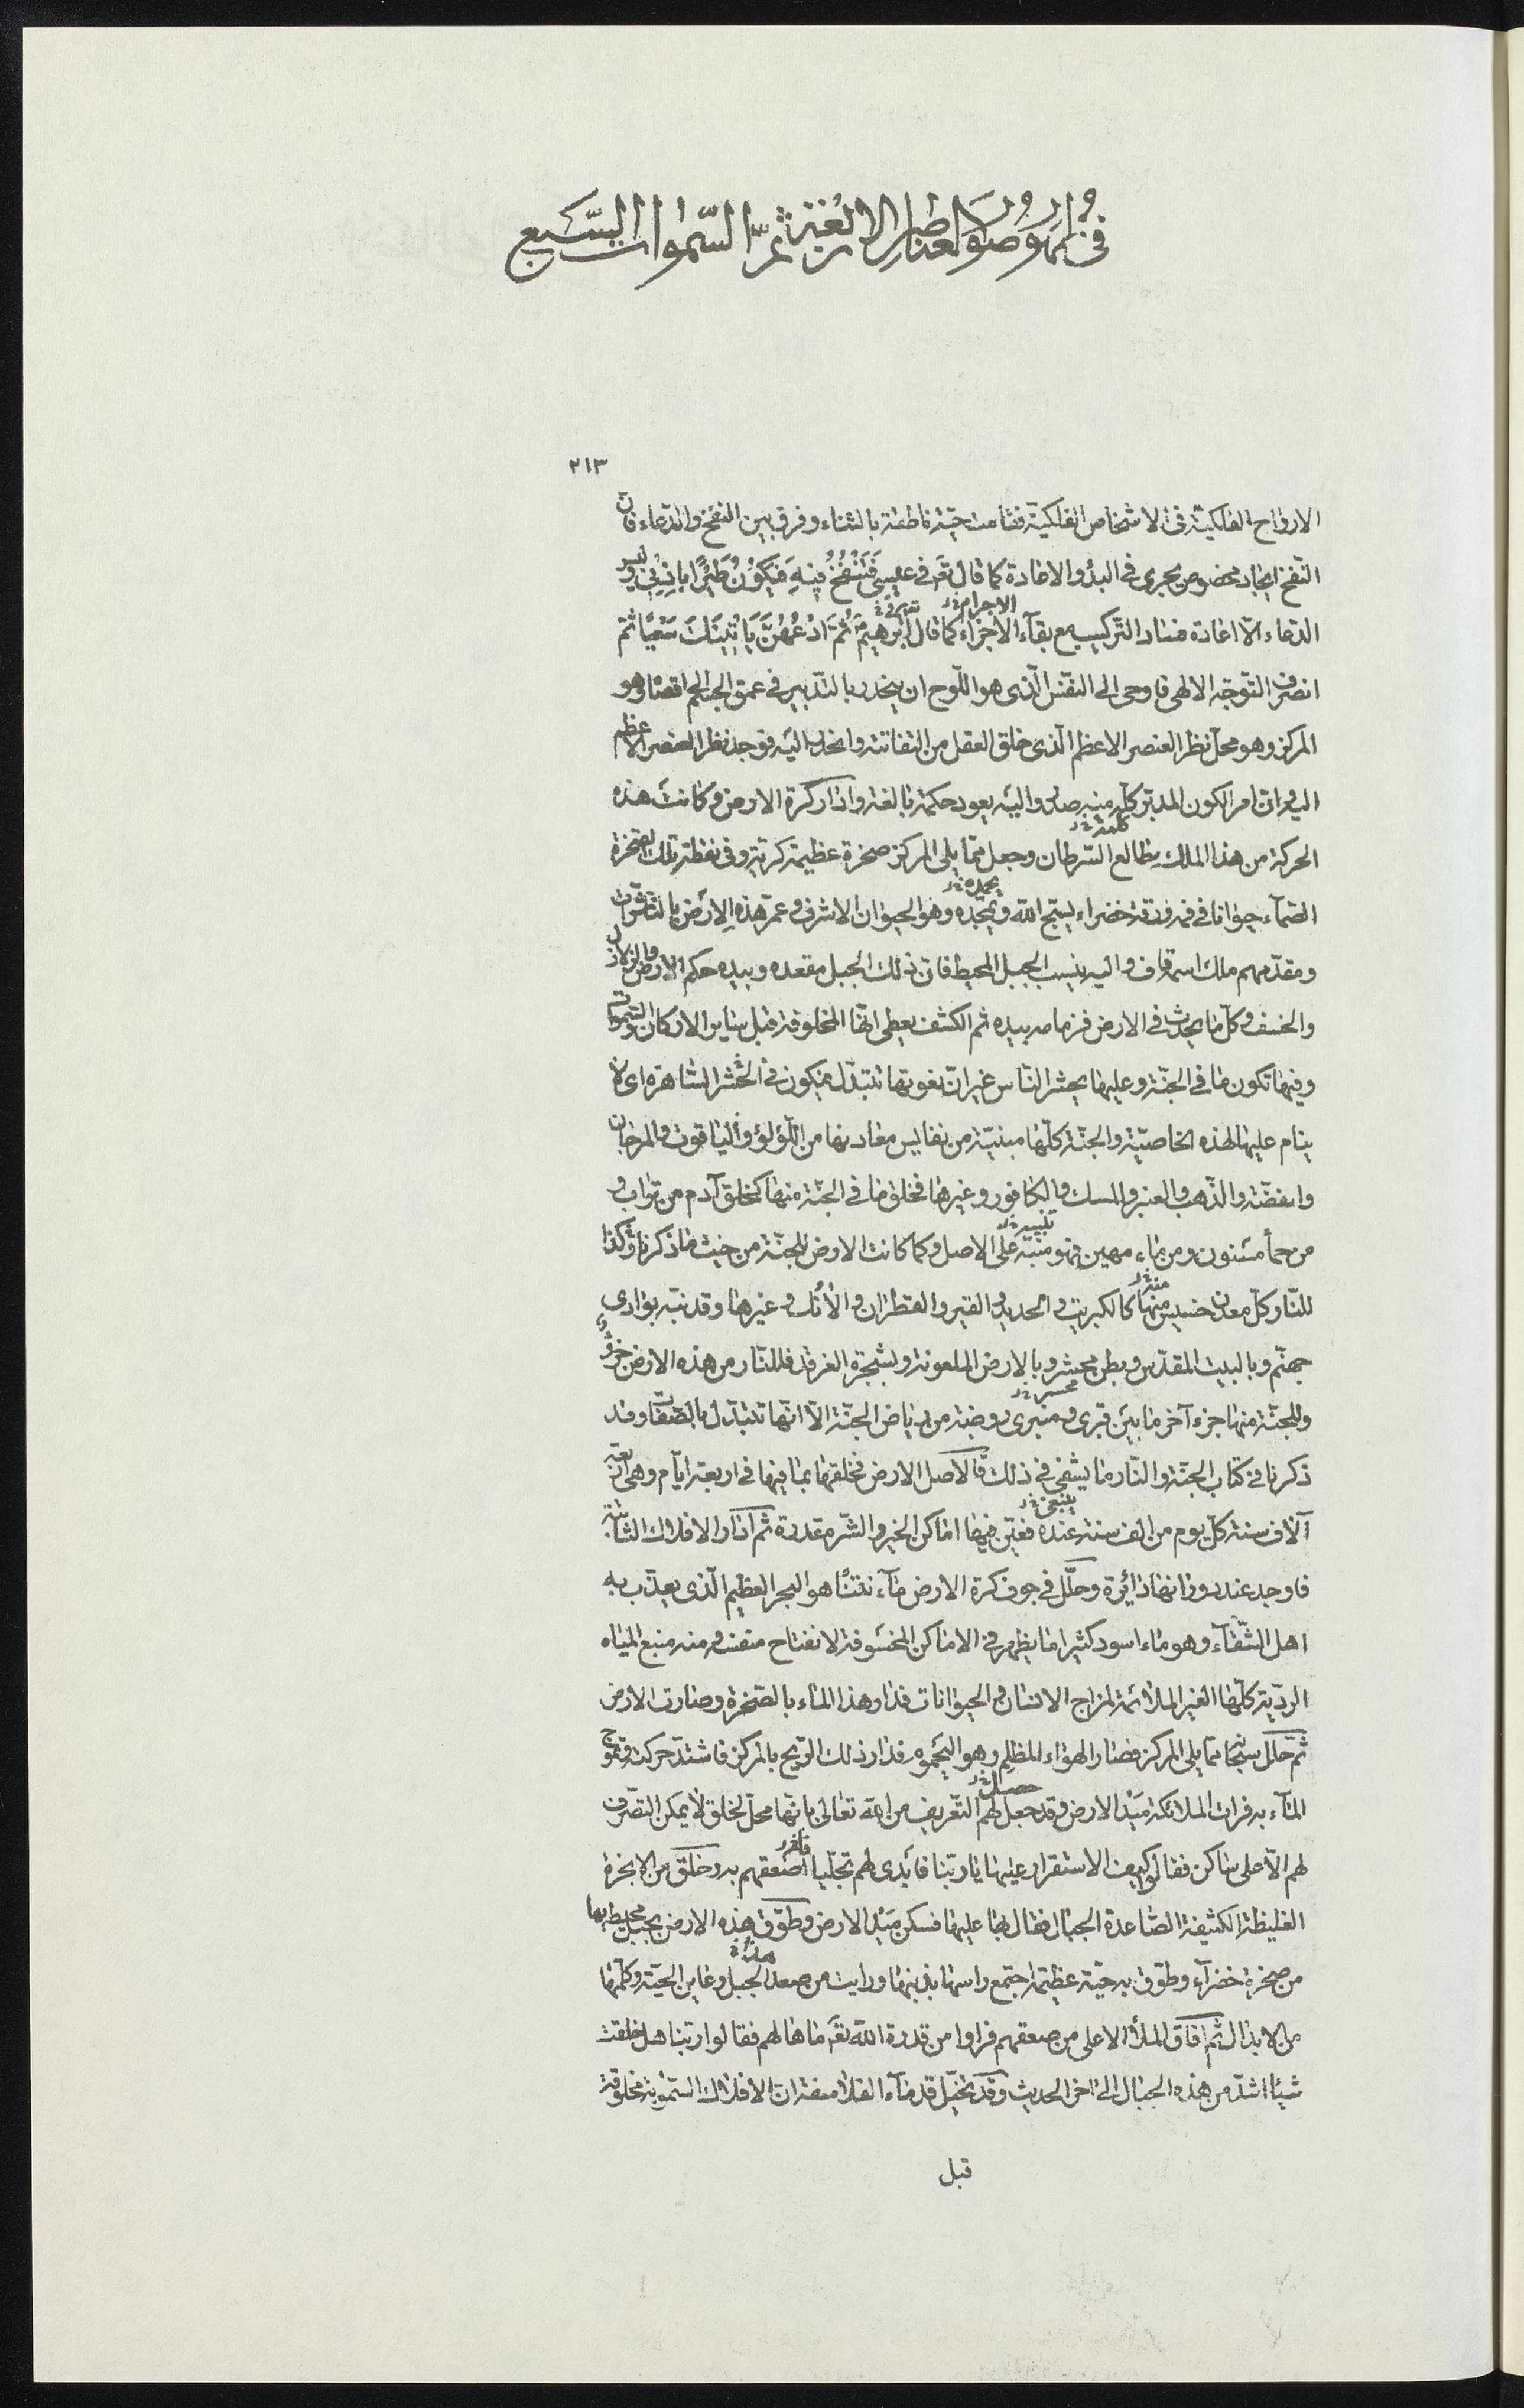 في ظهور صور العناصر الاربعة ثمّ السّموات السّبع
٢١٣
الارواح الفلكيّة فى الاشخاص الفلكيّة فقامت حيّة ناطقة بالثناء وفرق بين النفخ والدّعاء فانّ
النّفخ ايجاد مخصوص يجرى فى البدؤ والاعادة كما قال تعَ فى عيسى فَتَنْفُخُ فِيهَا فَيَكُونُ طَيْرًا بِاِذْنِى وليس
الدّعاء الّا اعادة فساد التّركيب مع بقآء الاجزاء كما قال ابرهيم ثُمَّ ادْعُهُنَّ يَاْتِينَكَ سَعْيًا ثمّ
الاجرام
انصرف التّوجّه الالهى فاوحى الى النّفس الّذى هو اللّوح ان ينحدر بالتّدبير فى عمق الجسم اقصاه وهو
المركز وهو محلّ نظر العنصر الاعظم الّذى خلق العقل من التفاتته وانحدر اليه فوجد نظر العنصر الاعظم
اليه وانّ امر الكون المدبّر كلّه منه صدر واليه يعود حكمة بالغة وادار كرة الارض وكانت هذه
الحركة من هذا الملك بطالع السّرطان وجعل ممّا يلى المركز صخرة عظيمة كرية وفى نقطة تلك الصّخرة
الصّمآء حيوانا فى فمه ورقة خضراء يسبّح الله ويمجّده وهو الحيوان الاشرف وعمّر هذه الارض بالتّقديرات
يحمده
ومقدّمهم ملك اسمه قاف واليه ينسب الجبل المحيط فانّ ذلك الجبل مقعده وبيده حكم الارض والزّلازل
والخسف وكلّ ما يحدث فى الارض فزمامه بيده ثم الكشف يعطى انّها المخلوقة قبل ساير الاركان والسّموات
وفيها تكون ما فى الجنّة وعليها يحشر النّاس غير انّ نعوتها تتبدّل فيكون فى الحشر السّاهرة اى لا
ينام عليها لهذه الخاصيّة والجنّة كلّها مبنيّة من نفايس معادنها من اللّؤلؤ والياقوت والمرجان
والفضّة والذّهب والعنبر والمسك والكافور وغيرها فخلق ما فى الجنّة منها كخلق آدم من تراب و
من حمأ مسنون ومن ماء مهين فهو منبّه على الاصل وكما كانت الارض للجنّة من حيث ما ذكرنا وكذا
تنبيه
للنّار وكلّ معدن خسيس منها كالكبريت والحديد والقير والقطران والآنك وغيرها وقد نبّه بوادى
جهنّم وبالبيت المقدّس وبطن محسر وبالارض الملعونة وبشجرة الغرقد فللنّار من هذه الارض جزؤ
محسر
وللجنّة منها جزء آخر ما بين قبرى ومنبرى روضة من رياض الجنّة الّا انّها تتبدّل بالصّفات وقد
ذكرنا فى كتاب الجنّة والنّار ما يشفى فى ذلك فالاصل الارض فخلقها بما فيها فى اربعة ايّام وهى اربعة
آلاف سنة كلّ يوم من الف سنة عنده فعيّن فيها اماكن الخير والشّر مقدرة ثمّ ادار الافلاك الثّابتة
فاوجد عند دورانها دائرة وحلّل فى جوف كرة الارض مآء نتنًا هو البحر العظيم الّذى يعذّب به
اهل الشّقآء وهو ماء اسود كثيرا ما يظهر فى الاماكن المخسوفة لانفتاح متنفسه ومنه منبع المياه
الرديّة كلّها الغير الملائمة لمزاج الانسان والحيوانات فدار هذا الماء بالصّخرة وصارت الارض
ثمّ حلّل سخانة ممّا يلى المركز فصار الهواء المظلم وهو اليحموم فدار ذلك الرّيح بالمركز فاشتدّ حركته وتموّج
المآء به فرات الملائكة ميد الارض وقد جعل لهم التّعريف من الله تعالى بانّها محلّ لخلق لا يمكن التّصرّف
حصل
لهم الّا على ساكن فقالوا كيف الاستقرار عليها يا ربّنا فابدى لهم تجلّيا اصعقهم به وخلق من الابخرة
الغليظة الكثيفة الصّاعدة الجبال فقال بها عليها فسكن ميد الارض وطوّق هذه الارض بجبل محيط بها
من صخرة خضرآء وطوّق به حيّة عظيمة اجتمع راسها بذنبها ورايت من صعد الجبل وعاين الحيّة وكلّمها
هذا
من الابدال ثمّ افاق الملأ الاعلى من صعقهم فراوا من قدرة الله تعَ ما هالهم فقالوا ربّنا هل خلقت
شيئا اشدّ من هذه الجبال الى اخر الحديث وقد تخيّل قدمآء الفلاسفة انّ الافلاك السّموية مخلوقة
قبل